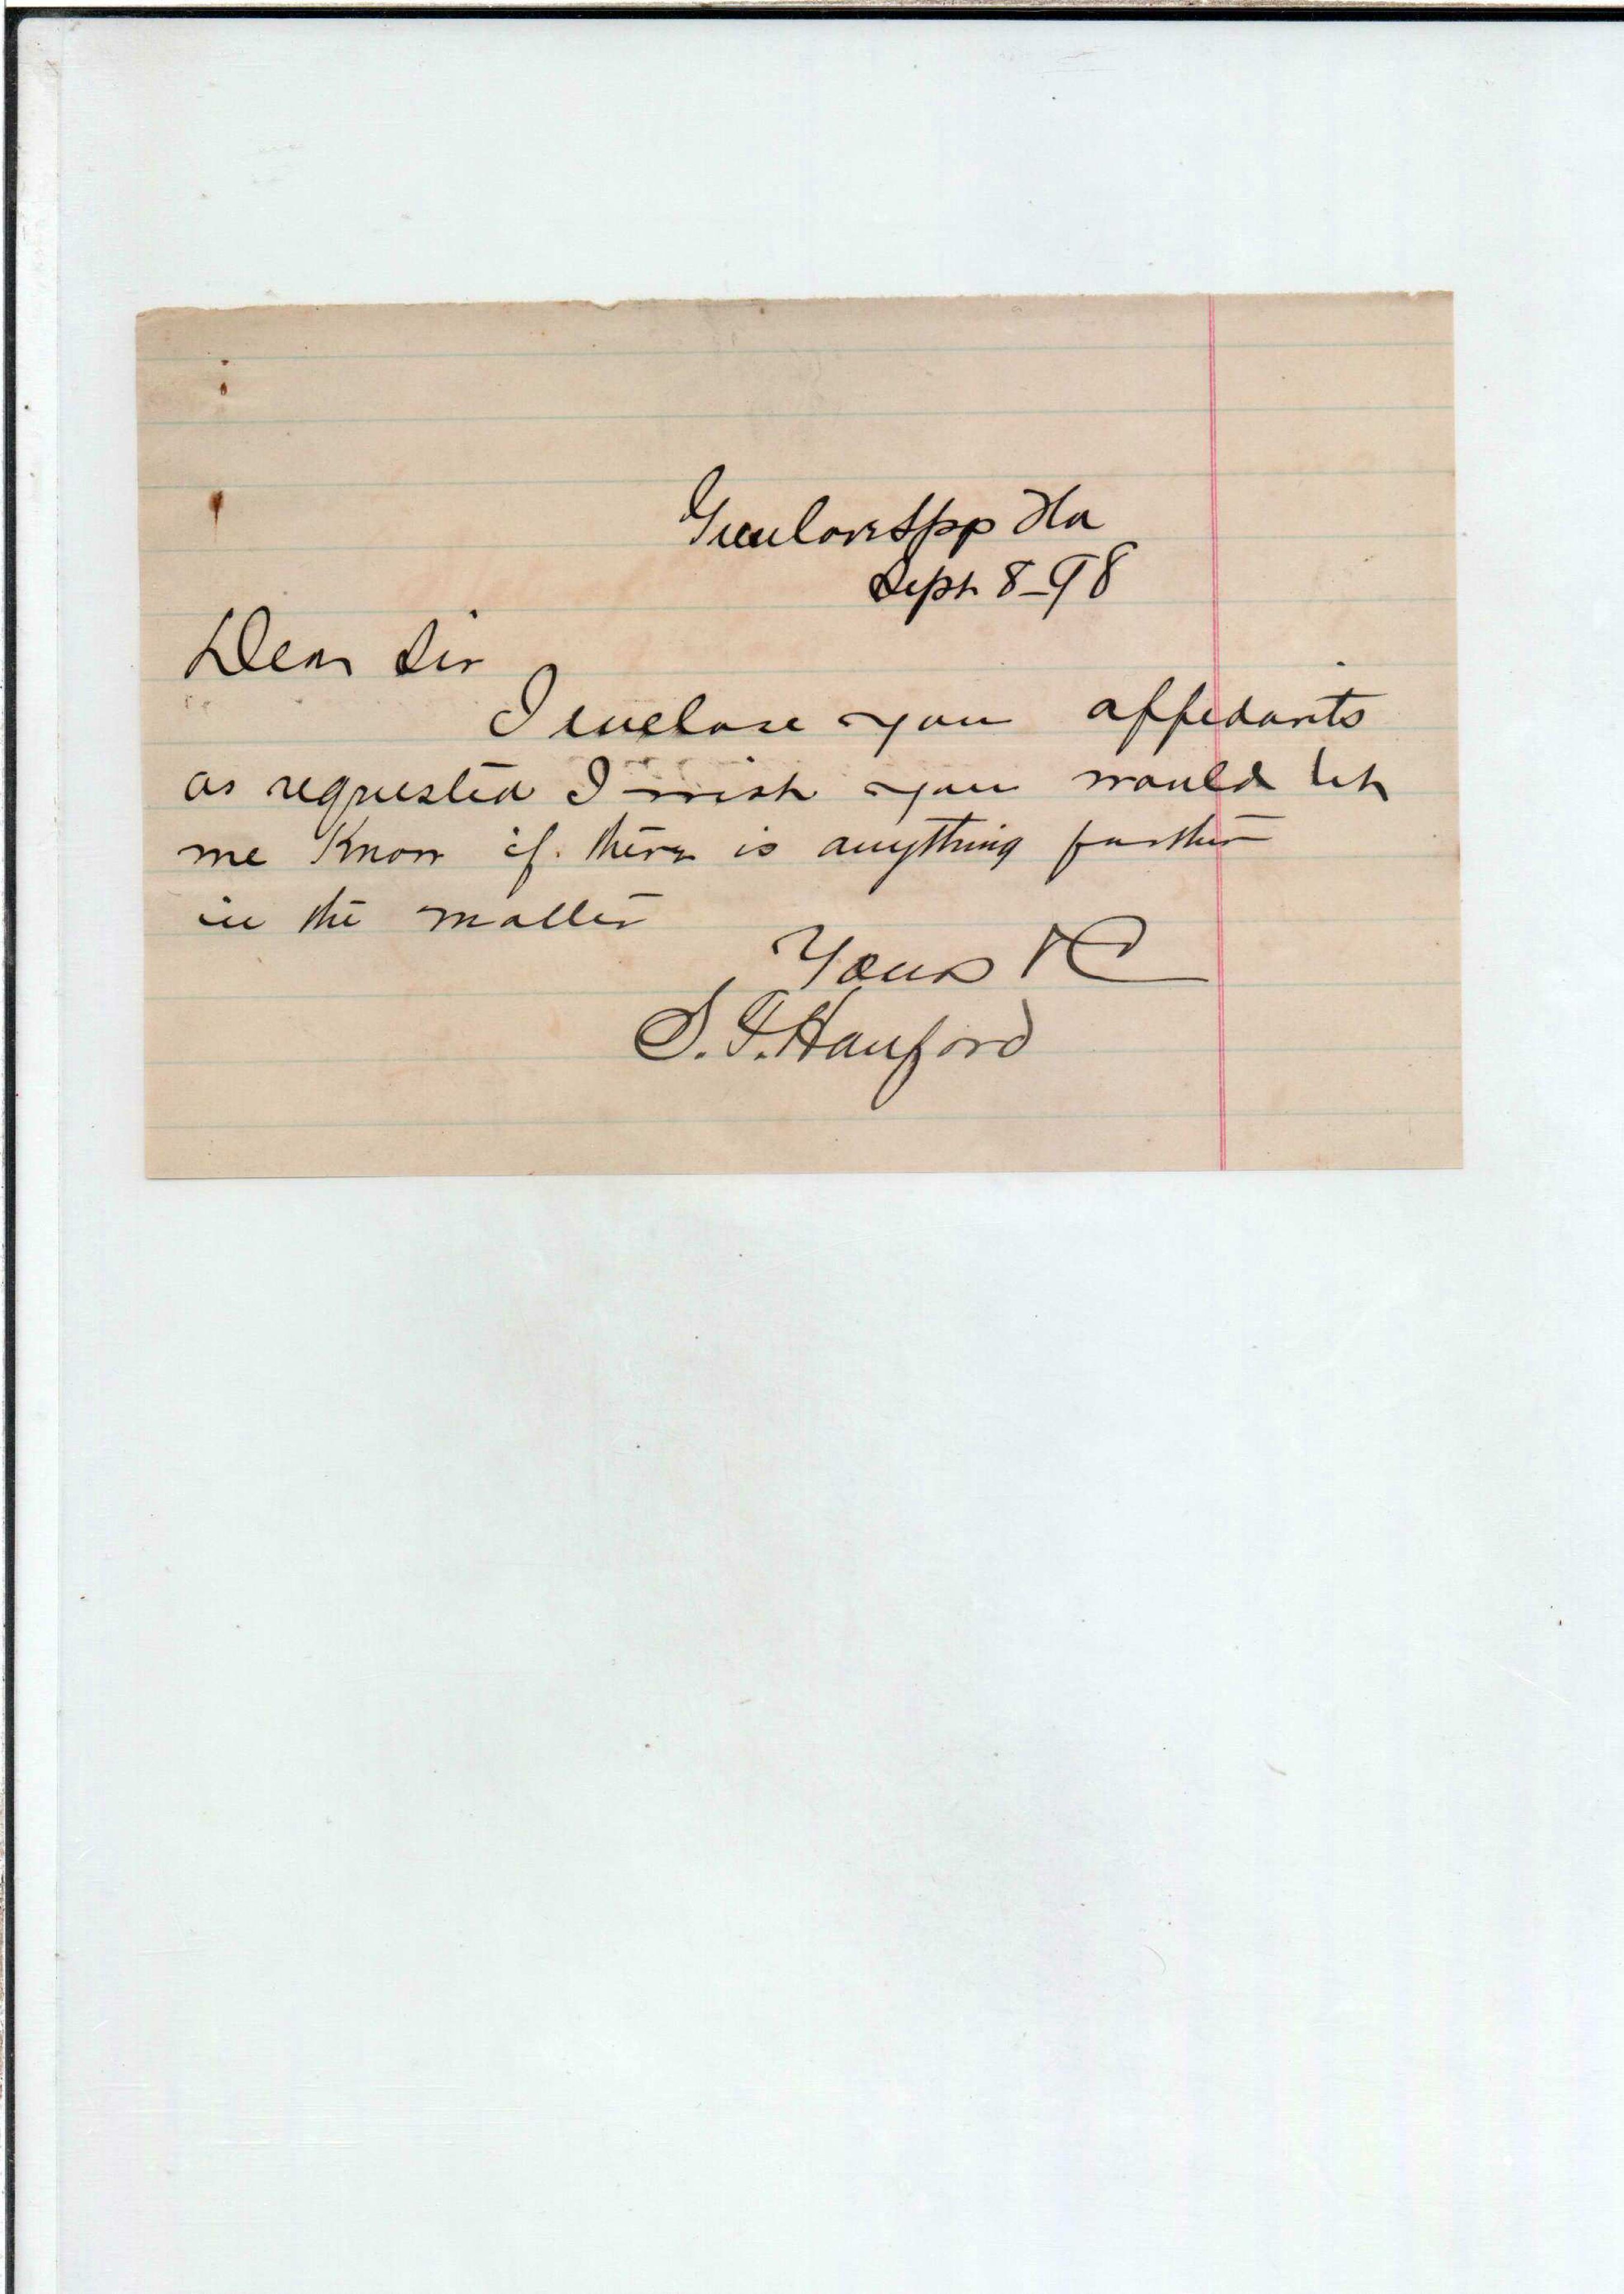 Green Cove Spgs Fla
Sept 8-98
Dear Sir
I enclose you affedavits
as requested I wish you would let
me Know if there is anything further
in the matter
Yours &c
S. F. Hanford